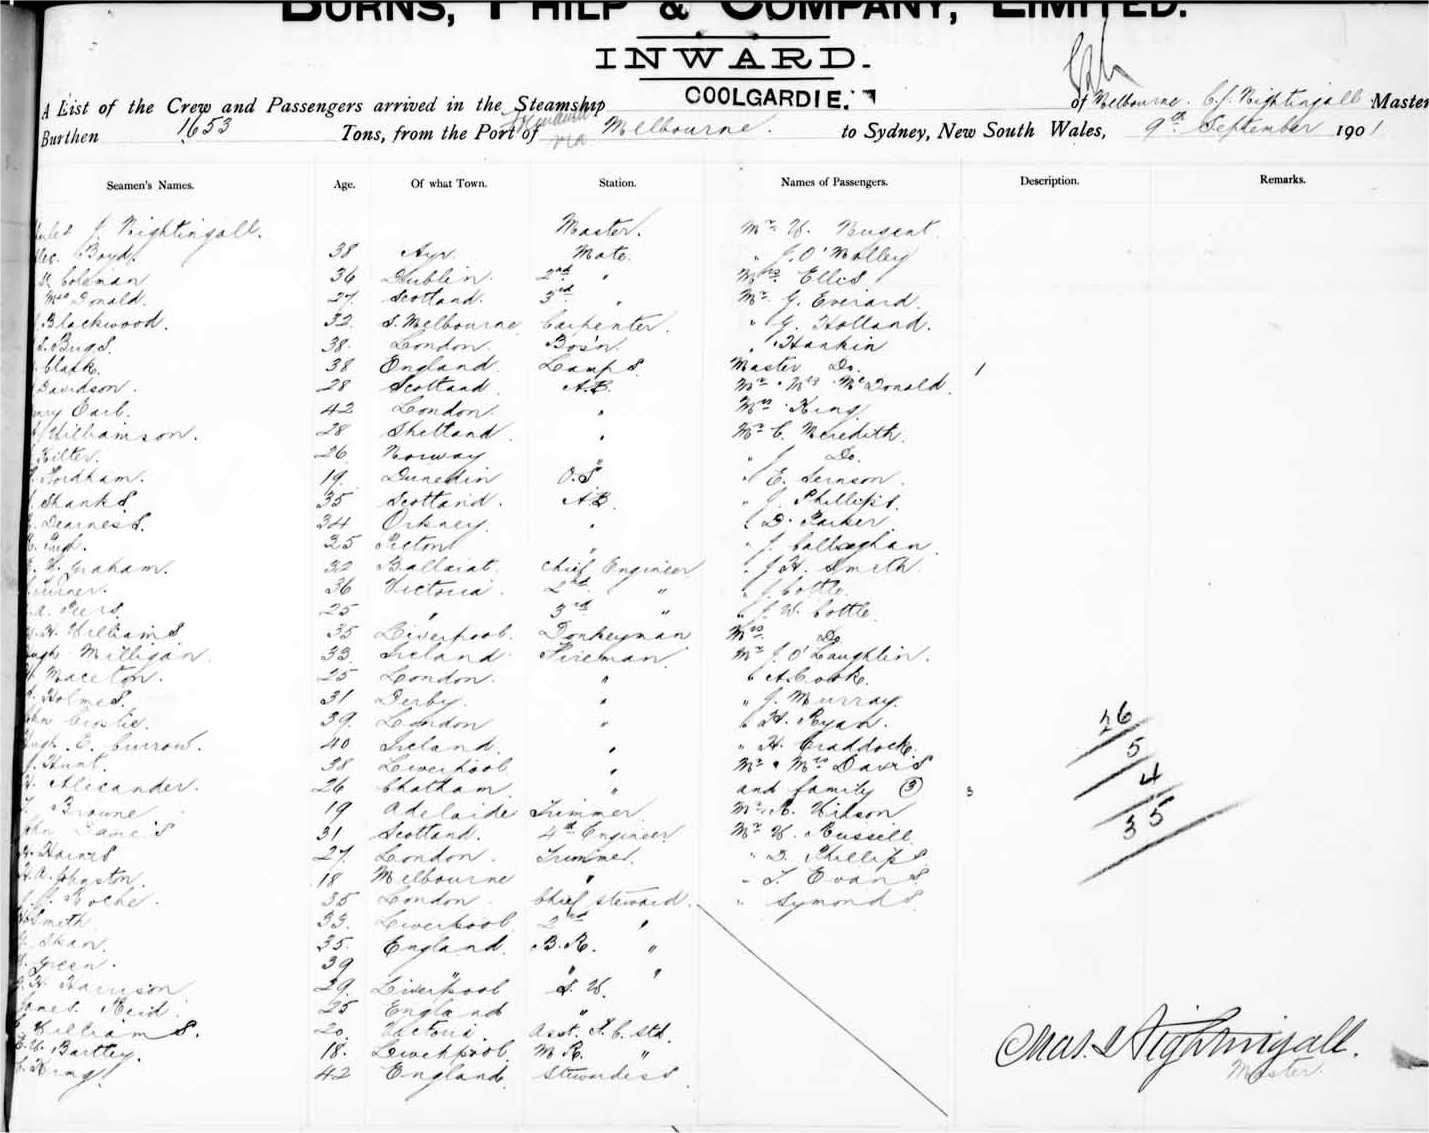 BURNS, PHILP & COMPANY, LIMITED.
INWARD.
A List of the Crew and Passengers arrived in the Steamship COOLGARDIE. of Melbourne. C. J. Nightingall Master
Burthen 1653 Tons, from the Port of via Melbourne. to Sydney, New South Wales, 9th September 1901
Seamen's Names. Age. Of what Town. Station. Names of Passengers. Description. Remarks.
J. Nightingall. Master. Mr W.
Boyd. 38 Ayr. Mate. " J. O'Malley
Coleman 36 Dublin. 2nd " Mrs Ellis
McDonald. 27 Scotland. 3rd " Mr G. Everard.
Blackwood. 32 S. Melbourne Carpenter. " G. Holland.
38. London. Bos'n. " Hankin
Clark. 38 England. Lamps. Master Do. 1
Davidson. 28 Scotland A.B. Mr & Mrs McDonald.
Earl. 42 London. " Mrs King
Williamson. 28 Shetland. " Mr C. Meredith.
26 Norway " " J. Do.
Fordham. 19. Dunedin O.S. " E.
Shanks. 35 Scotland. A.B. " J. Phillips.
Dearness. 34 Orkney. " " D. Parker
25 Picton " " J. Callaghan.
W. Graham. 32 Ballarat. Chief Engineer " J. H. Smith.
Turner. 36 Victoria. 2nd " " J. Cottle.
A. Peers. 25 " 3rd " " J. W. Cottle.
H. Williams 35 Liverpool. Donkeyman Mrs Do
Milligan 33 Ireland Fireman Mr J. O'Loughlin.
25 London. " " A. Cooke.
Holmes. 31 Derby. " " J. Murray.
39. London " " H. Ryan.
E. Currow. 40 Ireland. " " H. Craddock.
Hunt. 38 Liverpool " Mr & Mrs Davis
Alexander. 26 Chatham. " and family (3) 3
Browne 19 Adelaide Trimmer. Mr R. Wilson
31. Scotland. 4th Engineer Mr W. Russell
Haines 27 London. Trimmer. " D. Phillips
A. Johnston. 18 Melbourne " " T. Evans.
Roche. 35 London. Chief Steward. " Symonds
Smith 33. Liverpool 2nd "
35. England. B.R. "
Green. 39 " " "
H. Harrison 29. Liverpool S. W.
James Reid. 25 England "
Williams. 20. Asst. S. C. Std.
Bartley. 18. Liverpool. M.R. "
King 42 England. Stewardess
26
5
4
35
Chas. J Nightingall.
Master.